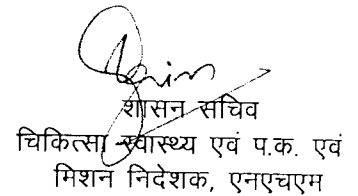 शासन सचिव
चिकित्सा स्वास्थ्य एवं प.क. एवं
मिशन निदेशक, एनएचएम